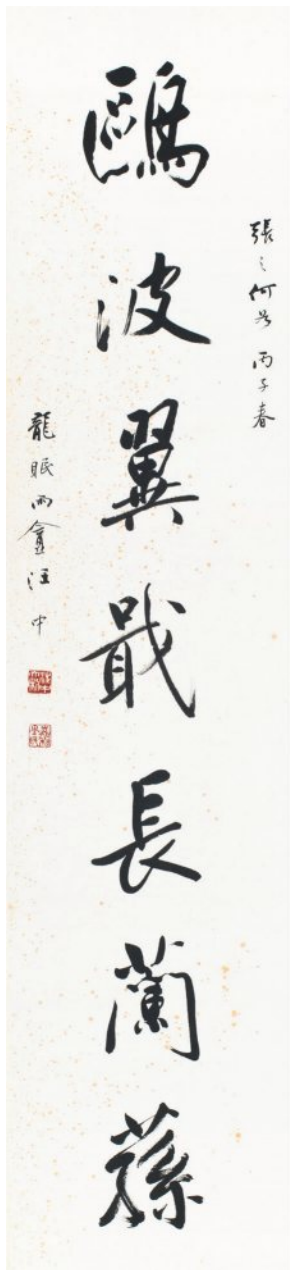 張之何 丙子春
鷗波翼戢長蘭蓀
龍眠雨盦汪中